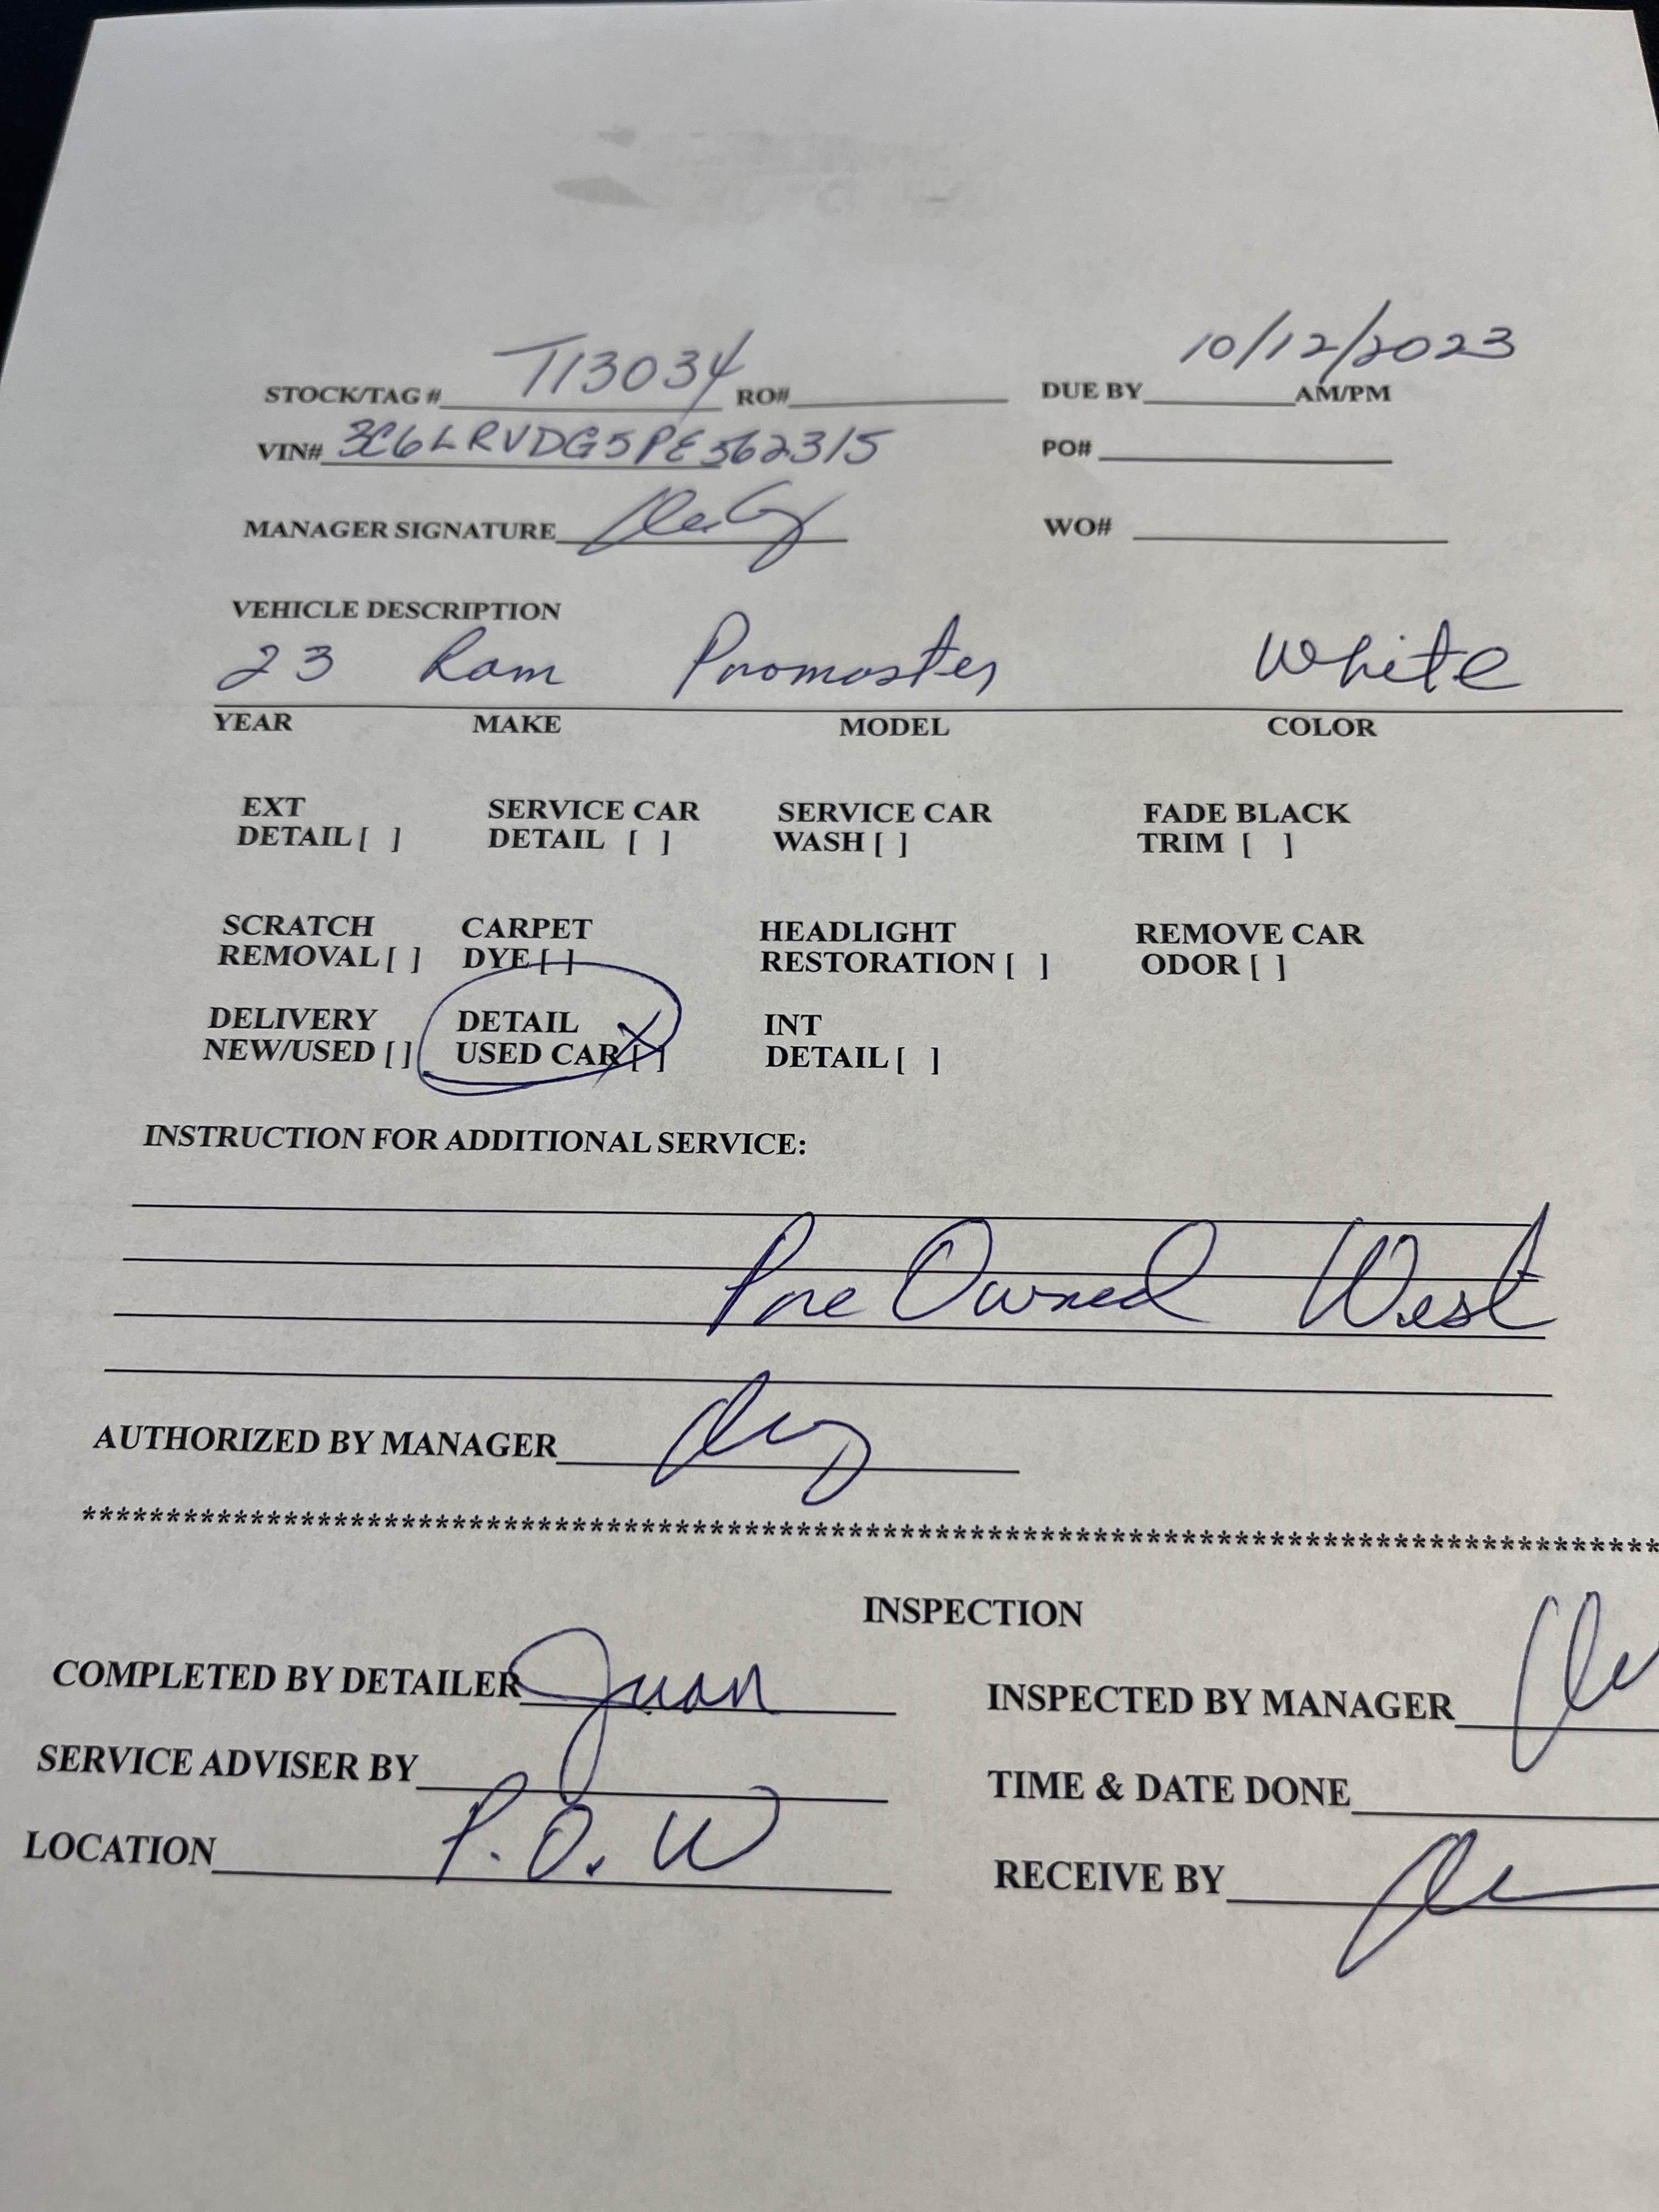 STOCK/TAG # T13034 RO# DUE BY 10/12/2023 AM/PM
VIN# 3C6LRVDG5PE562315 PO#
MANAGER SIGNATURE WO#
VEHICLE DESCRIPTION
23 Ram Promaster White
YEAR MAKE MODEL COLOR
EXT SERVICE CAR SERVICE CAR FADE BLACK
DETAIL [ ] DETAIL [ ] WASH [ ] TRIM [ ]
SCRATCH CARPET HEADLIGHT REMOVE CAR
REMOVAL [ ] DYE [ ] RESTORATION [ ] ODOR [ ]
DELIVERY DETAIL INT
NEW/USED [ ] USED CAR [X] DETAIL [ ]
INSTRUCTION FOR ADDITIONAL SERVICE:
Pre Owned West
AUTHORIZED BY MANAGER
****************************************************************************************
INSPECTION
COMPLETED BY DETAILER Juan INSPECTED BY MANAGER
SERVICE ADVISER BY TIME & DATE DONE
LOCATION P.O.W RECEIVE BY